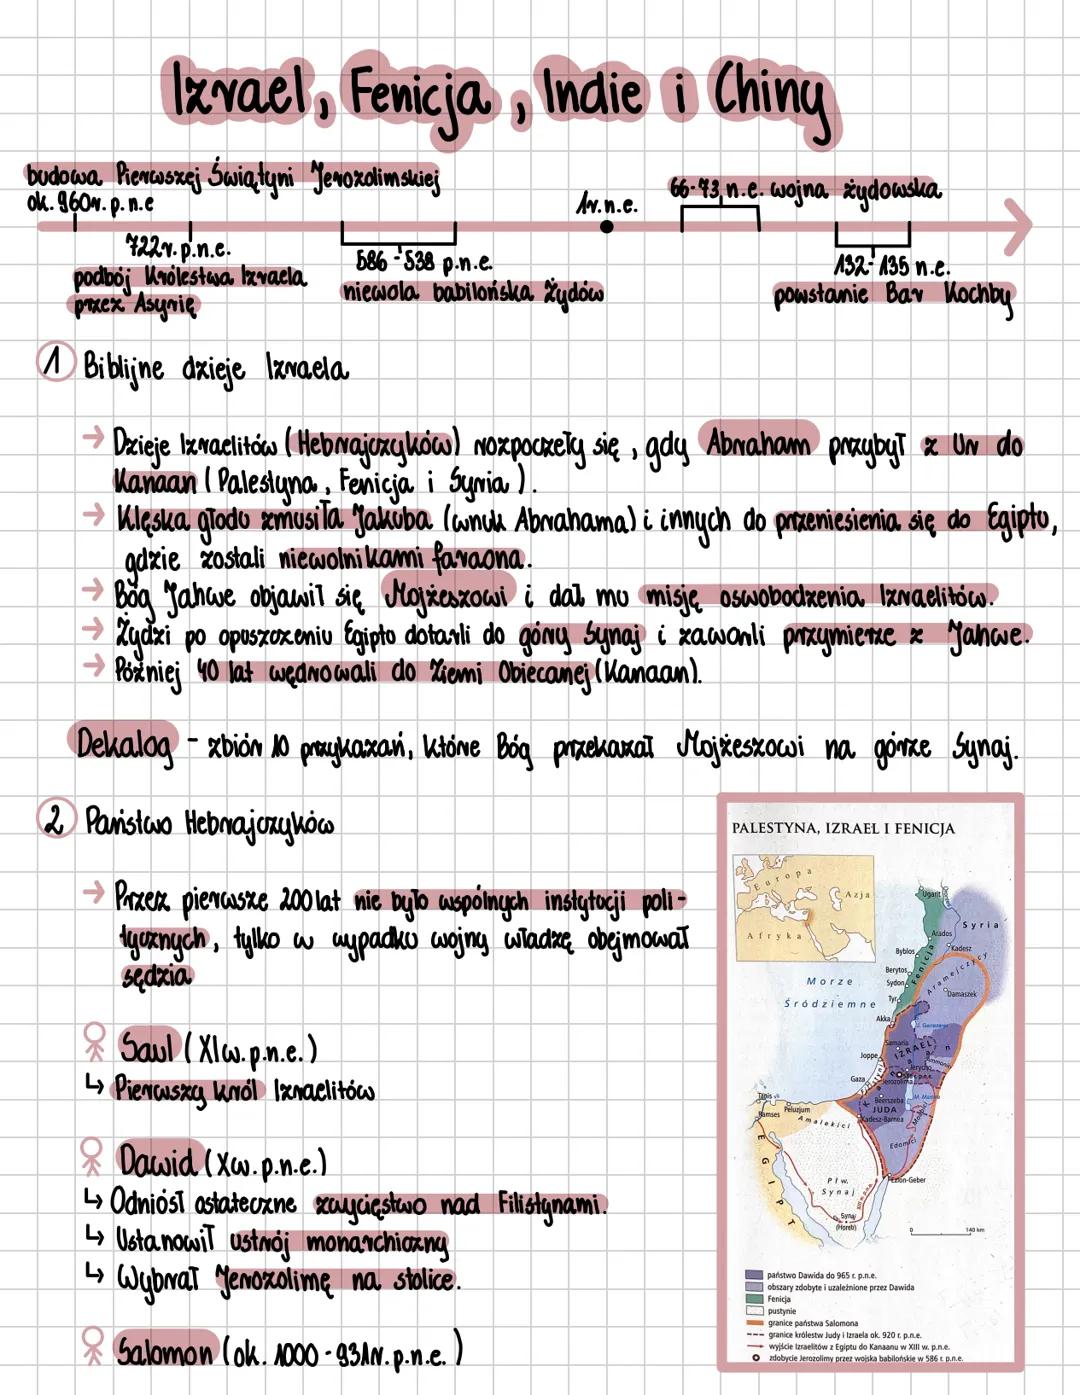 Izrael, Fenicja, Indie i Chiny
budowa Pierwszej Świątyni Jerozolimskiej
ok. 960r. p.n.e
1r.n.e.
66-73 n.e. wojna żydowska
722r. p.n.e.
podbój Królestwa Izraela
przez Asyrię
586 - 538 p.n.e.
niewola babilońska Żydów
132-135 n.e.
powstanie Bar Kochby
1 Biblijne dzieje Izraela
→ Dzieje Izraelitów (Hebrajczyków) rozpoczęły się, gdy Abraham przybył z Ur do
Kanaan (Palestyna, Fenicja i Syria).
→ Klęska głodu zmusiła Jakuba (wnuk Abrahama) i innych do przeniesienia się do Egiptu,
gdzie zostali niewolnikami faraona.
→ Bóg Jahwe objawił się Mojżeszowi i dał mu misję oswobodzenia Izraelitów.
→ Żydzi po opuszczeniu Egiptu dotarli do góry Synaj i zawarli przymierze z Jahwe.
→ Później 40 lat wędrowali do Ziemi Obiecanej (Kanaan).
Dekalog - zbiór 10 przykazań, które Bóg przekazał Mojżeszowi na górze Synaj.
2 Państwo Hebrajczyków
→ Przez pierwsze 200 lat nie było wspólnych instytucji poli-
tycznych, tylko w wypadku wojny władzę obejmował
sędzia
Saul (XI w. p.n.e.)
↳ Pierwszy król Izraelitów
Dawid (X w. p.n.e.)
↳ Odniósł ostateczne zwycięstwo nad Filistynami.
↳ Ustanowił ustrój monarchiczny
↳ Wybrał Jerozolimę na stolice.
Salomon (ok. 1000 - 931r. p.n.e.)
PALESTYNA, IZRAEL I FENICJA
Europa
Azja
Afryka
Ugarit
Syria
Arados
Kadesz
Byblos
Fenicja
Aramejczycy
Berytos
Sydon
Damaszek
Tyr
Morze
Śródziemne
Akka
J. Genezaret
Samaria
IZRAEL
Joppe
Jerycho
Gaza
Jerozolima
Beerszeba
M. Martwe
JUDA
Kadesz-Barnea
Edomici
Tanis
Ramses
Peluzjum
Amalekici
EGIPT
Płw.
Synaj
Synaj
(Horeb)
Ezjon-Geber
0 140 km
państwo Dawida do 965 r. p.n.e.
obszary zdobyte i uzależnione przez Dawida
Fenicja
pustynie
granice państwa Salomona
granice królestw Judy i Izraela ok. 920 r. p.n.e.
wyjście Izraelitów z Egiptu do Kanaanu w XIII w. p.n.e.
zdobycie Jerozolimy przez wojska babilońskie w 586 r. p.n.e.